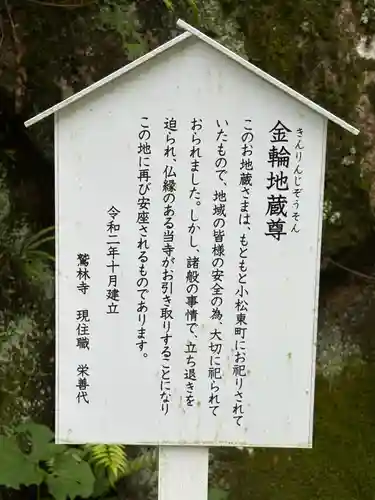 きんりんじぞうそん
金輪地蔵尊
このお地蔵さまは、もともと小松東町にお祀りされて
いたもので、地域の皆様の安全の為、大切に祀られて
おられました。しかし、諸般の事情で、立ち退きを
迫られ、仏縁のある当寺がお引き取りすることになり
この地に再び安座されるものであります。
令和二年十月建立
鷲林寺 現住職 栄善代